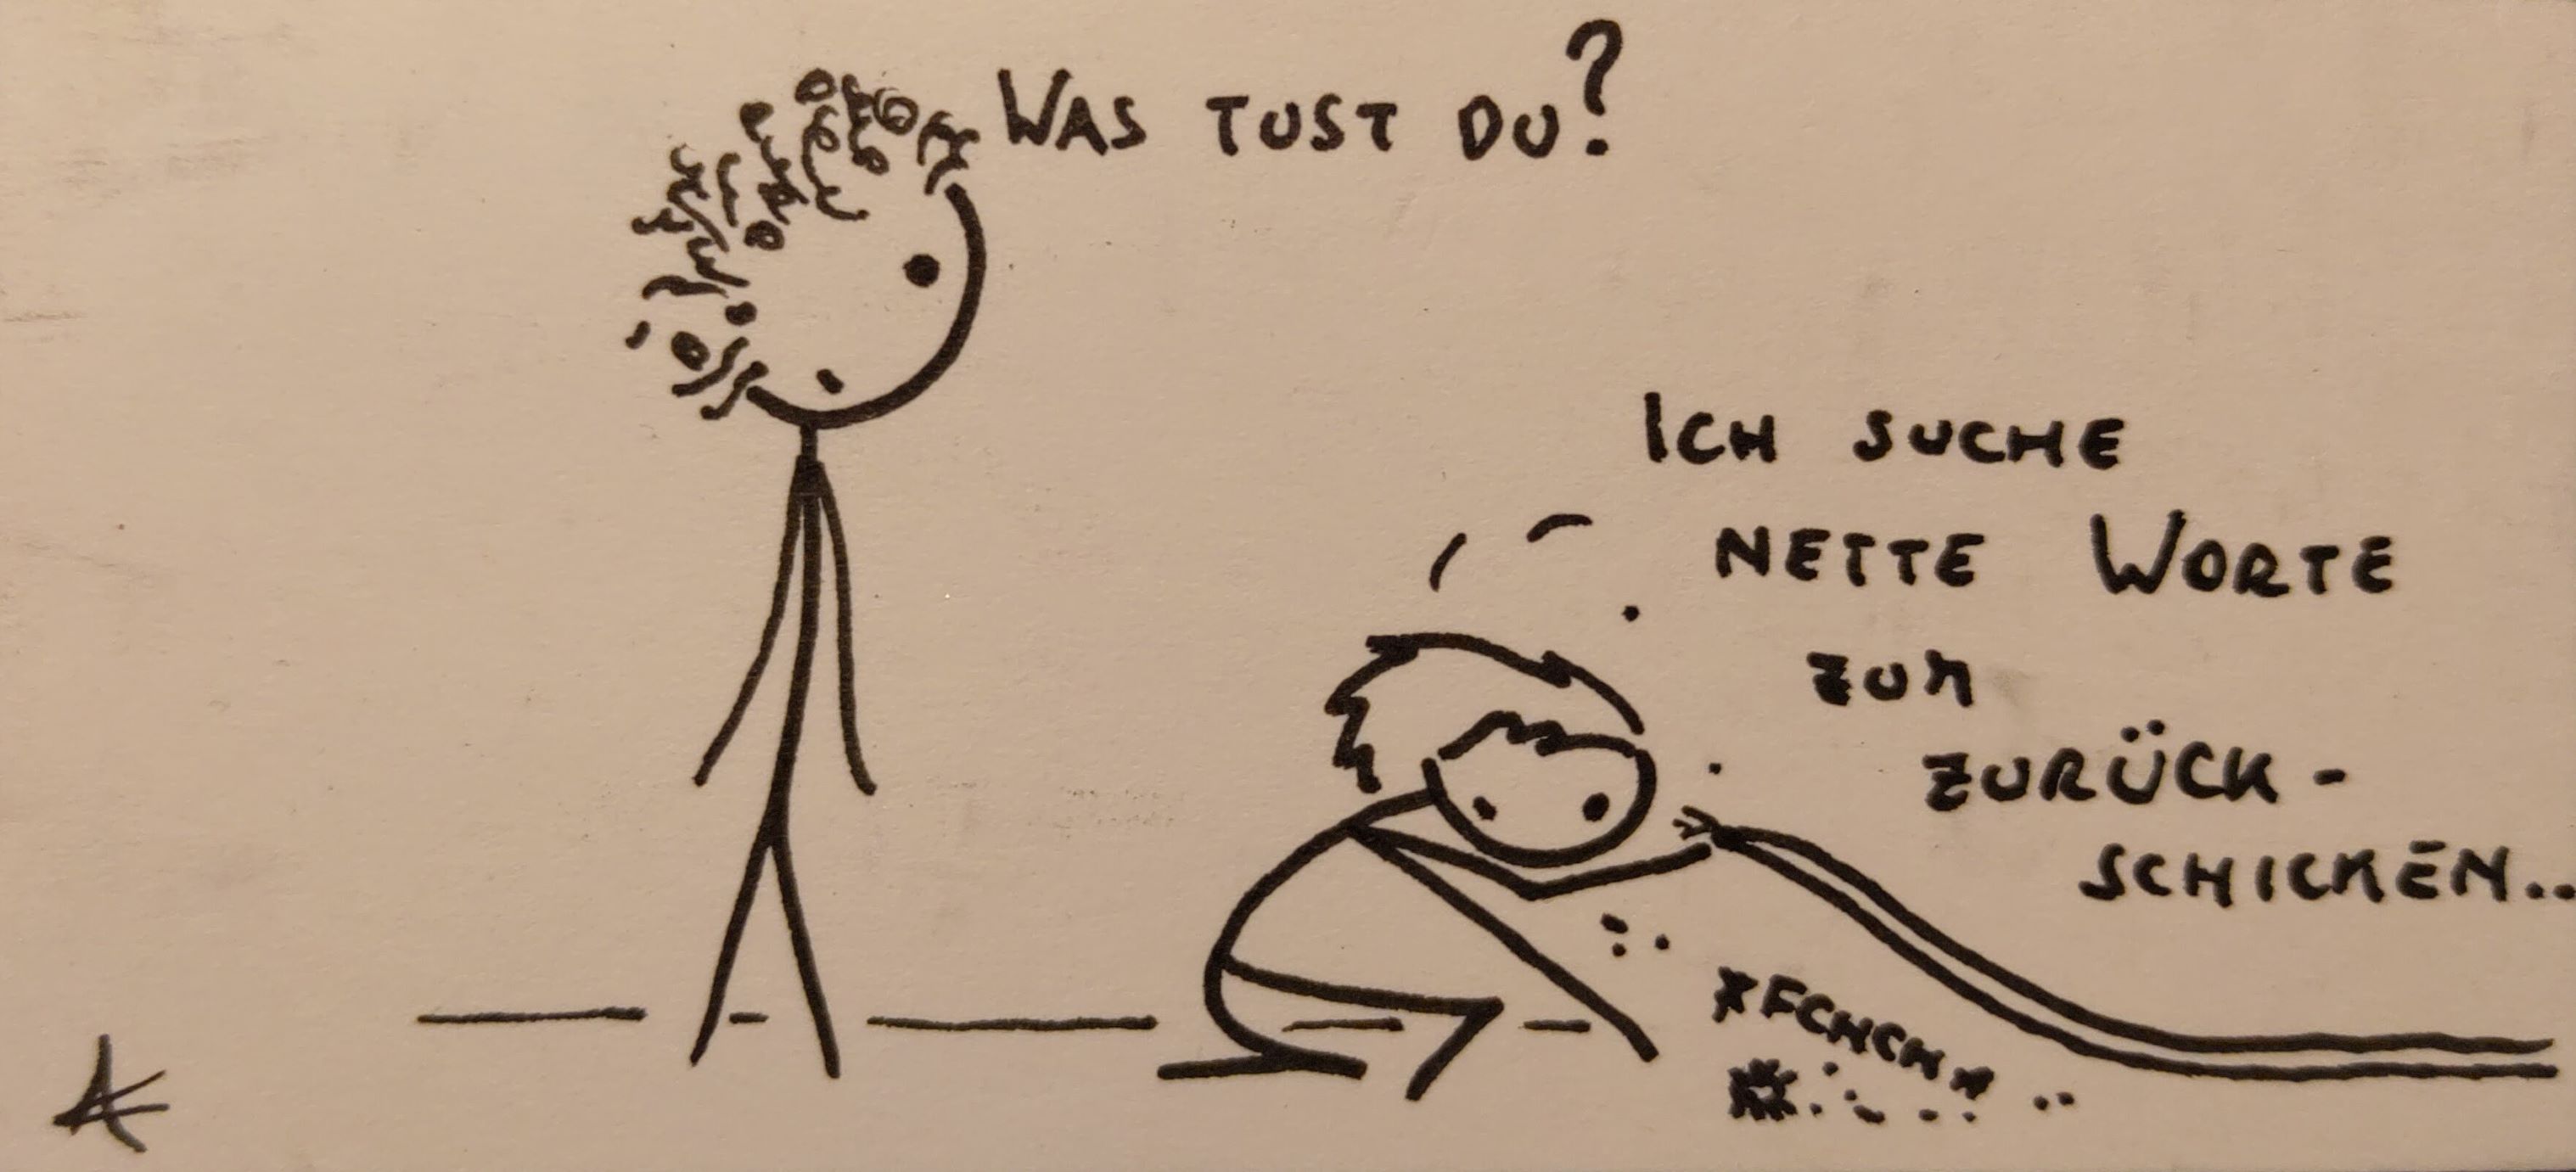 WAS TUST DU?
ICH SUCHE
NETTE WORTE
ZUM
ZURÜCK-
SCHICKEN..